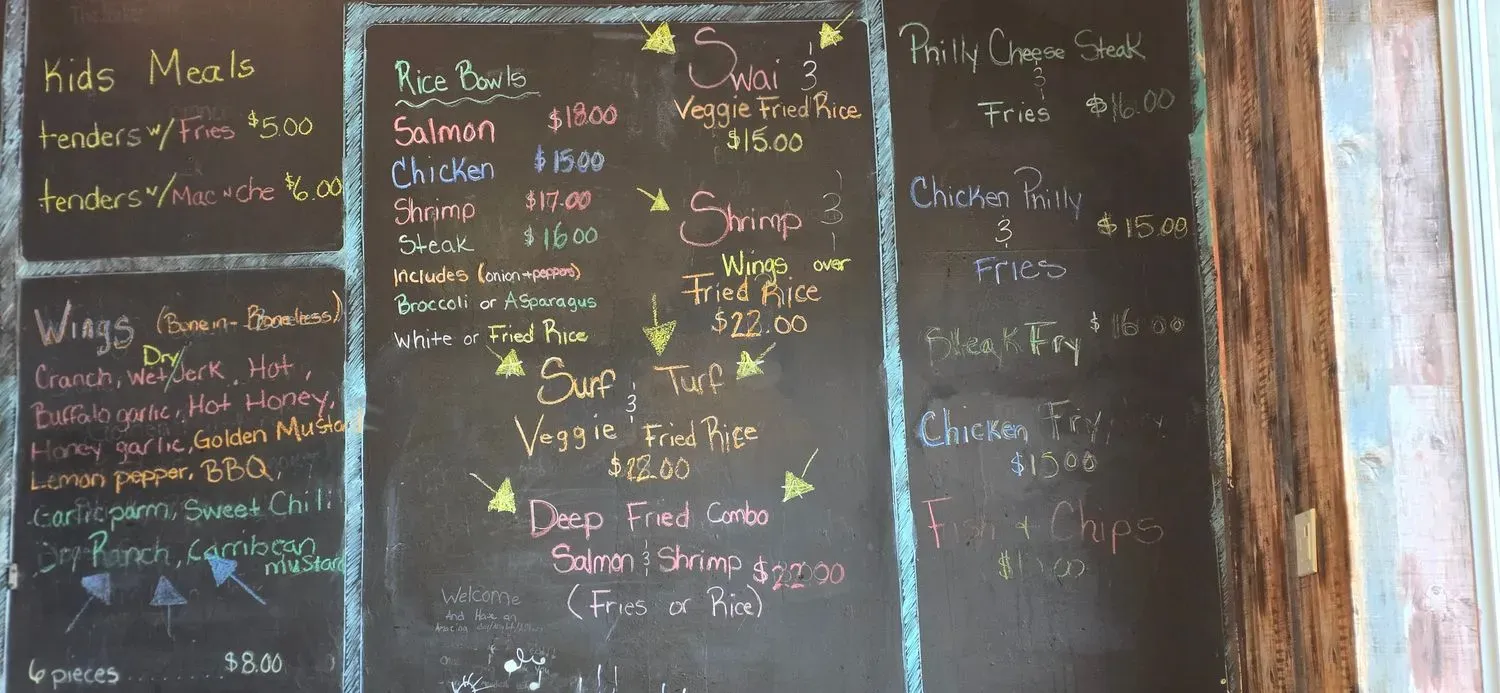 Kids Meals
tenders w/Fries $5.00
tenders w/Mac n che $6.00
Wings (Bonein - Boneless)
Dry/
Cranch, Wet/Jerk, Hot,
Buffalo garlic, Hot Honey,
Honey garlic, Golden Musta
Lemon pepper, BBQ,
Garlic parm, Sweet Chili
Dry Ranch, Carribean
mustard
6 pieces ........ $8.00
Rice Bowls
Salmon $18.00
Chicken $15.00
Shrimp $17.00
Steak $16.00
Includes (onion+peppers)
Broccoli or Asparagus
White or Fried Rice
Swai &
Veggie Fried Rice
$15.00
Shrimp &
Wings over
Fried Rice
$22.00
Surf & Turf
Veggie Fried Rice
$22.00
Deep Fried Combo
Salmon & Shrimp $22.00
(Fries or Rice)
Welcome
And Have an
Amazing
Philly Cheese Steak
&
Fries $16.00
Chicken Philly
& $15.00
Fries
Steak Fry $16.00
Chicken Fry
$15.00
Fish + Chips